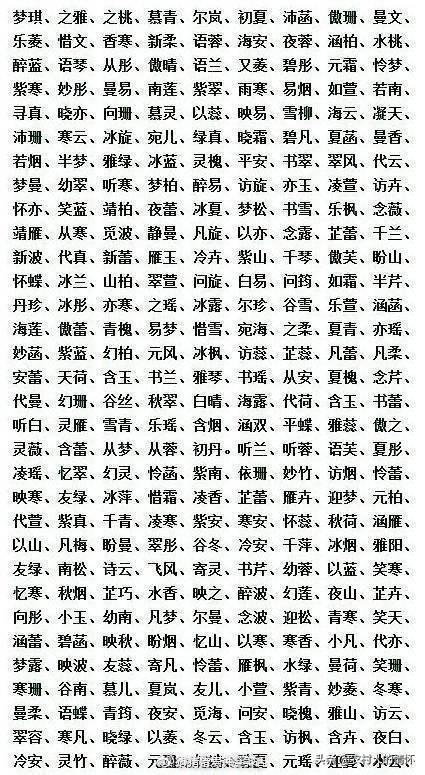 梦琪、之雅、之桃、慕青、尔岚、初夏、沛菡、傲珊、曼文、
乐菱、惜文、香寒、新柔、语蓉、海安、夜蓉、涵柏、水桃、
醉蓝、语琴、从彤、傲晴、语兰、又菱、碧彤、元霜、怜梦、
紫寒、妙彤、曼易、南莲、紫翠、雨寒、易烟、如萱、若南、
寻真、晓亦、向珊、慕灵、以蕊、映易、雪柳、海云、凝天、
沛珊、寒云、冰旋、宛儿、绿真、晓霜、碧凡、夏菡、曼香、
若烟、半梦、雅绿、冰蓝、灵槐、平安、书翠、翠风、代云、
梦曼、幼翠、听寒、梦柏、醉易、访旋、亦玉、凌萱、访卉、
怀亦、笑蓝、靖柏、夜蕾、冰夏、梦松、书雪、乐枫、念薇、
靖雁、从寒、觅波、静曼、凡旋、以亦、念露、芷蕾、千兰、
新波、代真、新蕾、雁玉、冷卉、紫山、千琴、傲芙、盼山、
怀蝶、冰兰、山柏、翠萱、问旋、白易、问筠、如霜、半芹、
丹珍、冰彤、亦寒、之瑶、冰露、尔珍、谷雪、乐萱、涵菡、
海莲、傲蕾、青槐、易梦、惜雪、宛海、之柔、夏青、亦瑶、
妙菡、紫蓝、幻柏、元风、冰枫、访蕊、芷蕊、凡蕾、凡柔、
安蕾、天荷、含玉、书兰、雅琴、书瑶、从安、夏槐、念芹、
代曼、幻珊、谷丝、秋翠、白晴、海露、代荷、含玉、书蕾、
听白、灵雁、雪青、乐瑶、含烟、涵双、平蝶、雅蕊、傲之、
灵薇、含蕾、从梦、从蓉、初丹。听兰、听蓉、语芙、夏彤、
凌瑶、忆翠、幻灵、怜菡、紫南、依珊、妙竹、访烟、怜蕾、
映寒、友绿、冰萍、惜霜、凌香、芷蕾、雁卉、迎梦、元柏、
代萱、紫真、千青、凌寒、紫安、寒安、怀蕊、秋荷、涵雁、
以山、凡梅、盼曼、翠彤、谷冬、冷安、千萍、冰烟、雅阳、
友绿、南松、诗云、飞风、寄灵、书芹、幼蓉、以蓝、笑寒、
忆寒、秋烟、芷巧、水香、映之、醉波、幻莲、夜山、芷卉、
向彤、小玉、幼南、凡梦、尔曼、念波、迎松、青寒、笑天、
涵蕾、碧菡、映秋、盼烟、忆山、以寒、寒香、小凡、代亦、
梦露、映波、友蕊、寄凡、怜蕾、雁枫、水绿、曼荷、笑珊、
寒珊、谷南、慕儿、夏岚、友儿、小萱、紫青、妙菱、冬寒、
曼柔、语蝶、青筠、夜安、觅海、问安、晓槐、雅山、访云、
翠容、寒凡、晓绿、以菱、冬云、含玉、访枫、含卉、夜白、
冷安、灵竹、醉薇、元